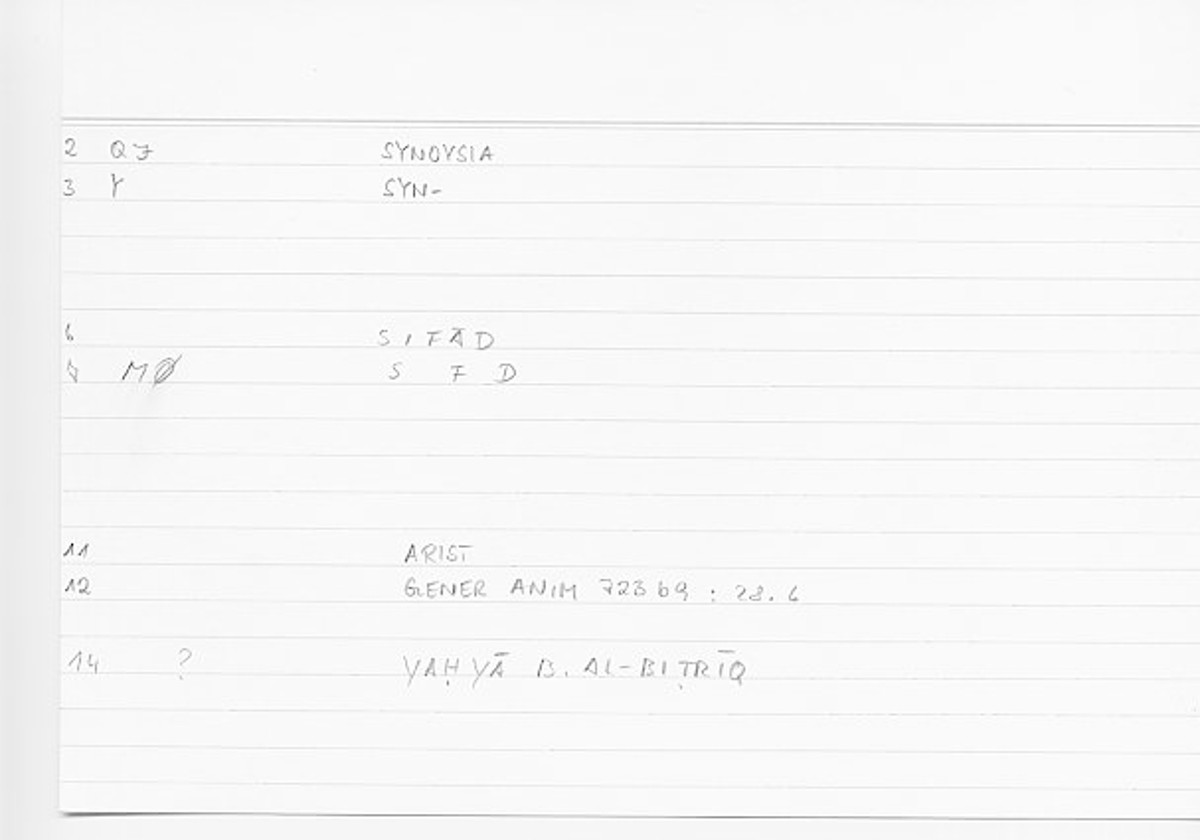 2 QF SYNOYSIA
3 Y SYN-
6 SIFĀD
MØ S F D
11 ARIST
12 GENER ANIM 723 b9 : 28.6
14 ? YAḤYĀ B. AL-BIṬRĪQ